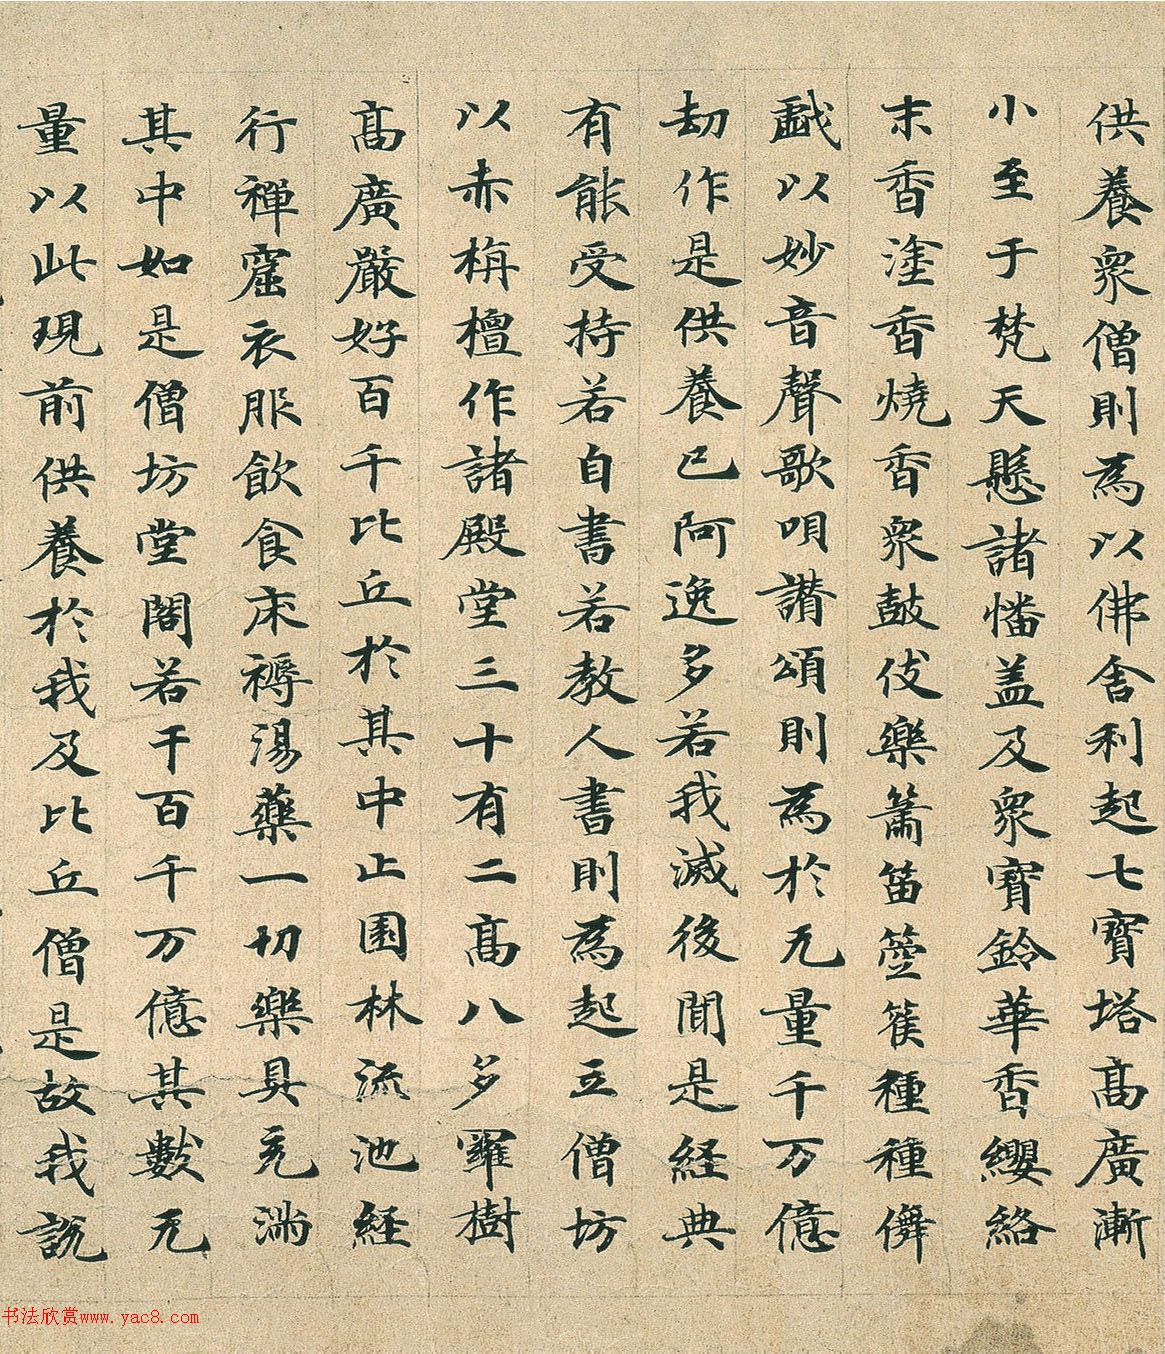 供養衆僧則為以佛舍利起七寶塔高廣漸
小至于梵天懸諸幡盖及衆寶鈴華香纓絡
末香塗香燒香衆鼓伎樂簫笛箜篌種種儛
戱以妙音聲歌唄讃頌則為於无量千万億
劫作是供養已阿逸多若我滅後聞是経典
有能受持若自書若教人書則為起立僧坊
以赤栴檀作諸殿堂三十有二高八多羅樹
高廣嚴好百千比丘於其中止園林流池経
行禪窟衣服飲食床褥湯藥一切樂具充滿
其中如是僧坊堂閣若干百千万億其數无
量以此現前供養於我及比丘僧是故我說
书法欣赏www.yac8.com